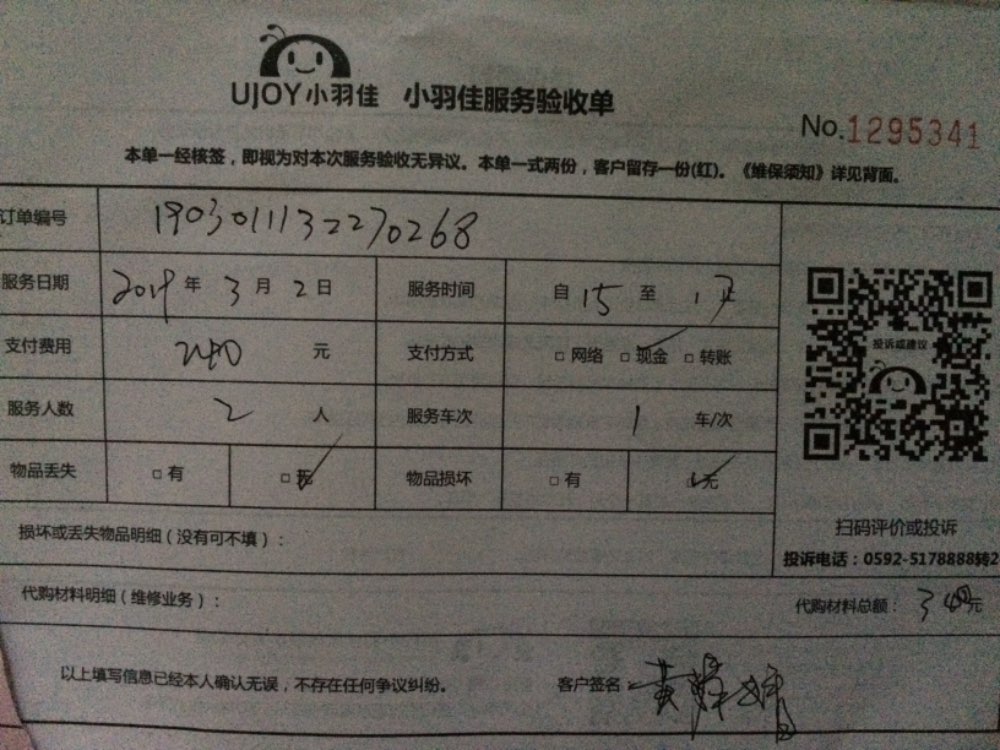 UJOY小羽佳 小羽佳服务验收单
No.1295341
本单一经核签，即视为对本次服务验收无异议。本单一式两份，客户留存一份(红)。《维保须知》详见背面。
订单编号 19030111322270268
服务日期 2019年3月2日 服务时间 自15至17
支付费用 240元 支付方式 □网络 □现金 □转账
服务人数 2人 服务车次 1车/次
物品丢失 □有 □无 物品损坏 □有 □无
投诉或建议
损坏或丢失物品明细（没有可不填）：
扫码评价或投诉
投诉电话：0592-5178888转2
代购材料明细（维修业务）：
代购材料总额： 元
以上填写信息已经本人确认无误，不存在任何争议纠纷。 客户签名：